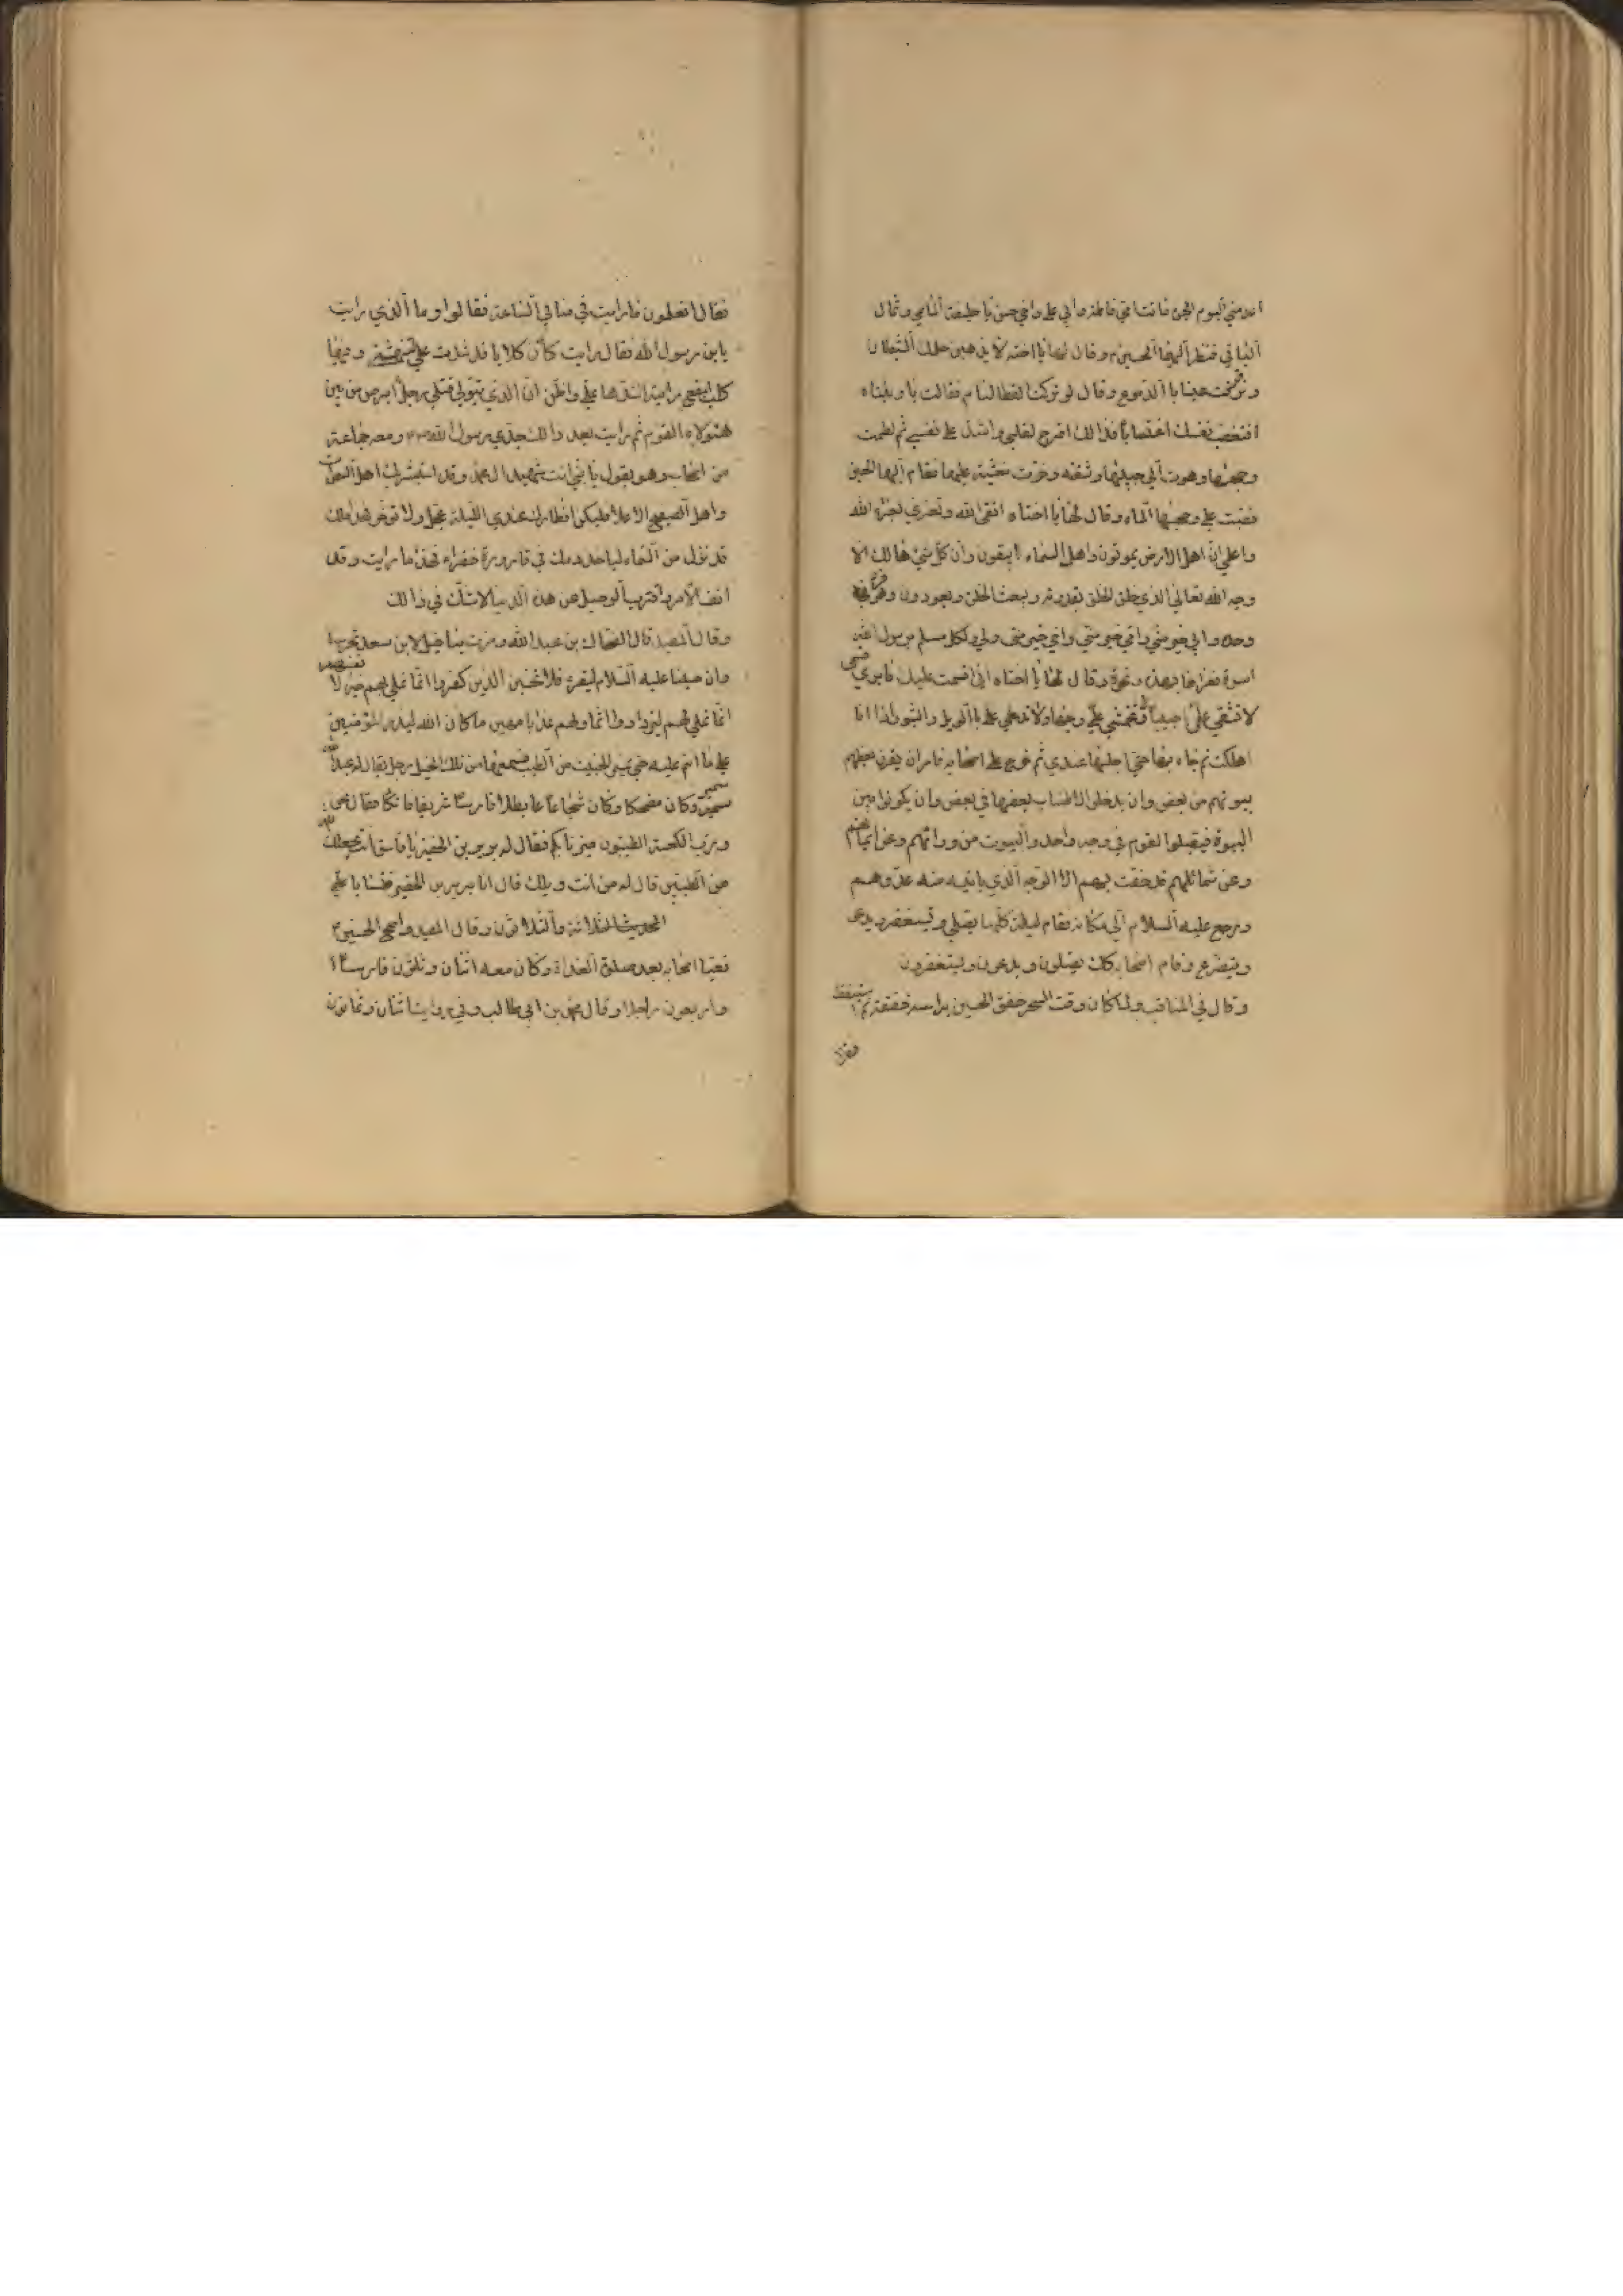 اعدمني اليوم الحيوة ماتت امي فاطمة وابي علي واخي حسن يا خليفة الماضي وثمال
الباقي فنظر اليها الحسين ع وقال لها يا اخته لا يذهبن حلمك الشيطان
وترقرقت عيناه باالدموع وقال لو ترك القطا لنام فقالت يا ويلتاه
افتغتصب نفسك اغتصاباً فذالك اقرح لقلبي واشد على نفسي ثم لطمت
وجهها وهوت الي جيبها وشقته وخرت مغشية عليها فقام اليها الحسين
فصبت على وجهها الماء وقال لها يا اختاه اتقي الله وتعزي بعزاء الله
واعلمي ان اهل الارض يموتون واهل السماء لا يبقون وان كل شئ هالك الا
وجه الله تعالي الذي خلق الخلق بقدرته ويبعث الخلق ويعودون وهو فرد
وحده وابي خير مني وامي خير مني واخي خير مني ولي ولكل مسلم برسول الله
اسوة فعزاها بهذا ونحوه وقال لها يا اختاه اني اقسمت عليك فابري قسمي
لا تشقي علي جيباً ولا تخمشي علي وجهاً ولا تدعي علي باالويل والثبور اذا انا
اهلكت ثم جاء بها حتى اجلسها عندي ثم خرج على اصحابه فامر ان يقرن بعضهم
بيوتهم من بعض وان يدخلوا الاطناب بعضها في بعض وان يكونوا بين
البيوة فيقبلوا القوم في وجه واحد والبيوت من ورائهم وعن ايمانهم
وعن شمائلهم قد حفت بهم الا الوجه الذي ياتيهم منه عدوهم
ورجع عليه السلام الي مكانه فقام ليلته كلها يصلي ويستغفر ويدعو
ويتضرع وقام اصحابه كك يصلون ويدعون ويستغفرون
وقال في المناقب ولما كان وقت السحر خفق الحسين براسه خفقة ثم استيقظ
فقال
فقال اتعلمون ما رايت في منامي الساعة فقالوا وما الذي رايت
يابن رسول الله فقال رايت كأن كلابا قد شدت علي لتنهشني وفيها
كلب ابقع رايته اشدها علي واظن ان الذي يتولي قتلي رجل ابرص من بين
هؤلاء القوم ثم رايت بعد ذالك جدي رسول الله ومعه جماعة
من اصحابه وهو يقول يا بني انت شهيد ال محمد وقد استبشر بك اهل السموات
واهل الصفيح الاعلا فليكن افطارك عندي الليلة عجل ولا توخر فهذا ملك
قد نزل من السماء لياخذ دمك في قارورة خضراء فهذا ما رايت وقد
انف الامر واقترب الرحيل من هذه الدنيا لا شك في ذالك
وقال المفيد قال الضحاك بن عبد الله ومرت بنا خيل لابن سعد تحرسنا
وان حسينا عليه السلام ليقرء فلا تحسبن الذين كفروا انما نملي لهم خير لانفسهم
انما نملي لهم ليزدادوا اثما ولهم عذاب مهين ما كان الله ليذر المؤمنين
علي ما انتم عليه حتى يميز الخبيث من الطيب فسمعها من تلك الخيل رجل يقال له عبد الله
سمير وكان مضحكا وكان شجاعا بطلا فارسا شريفا فاتكا فقال نحن
ورب الكعبة الطيبون ميزنا بكم فقال له برير بن الخضير يا فاسق انت يجعلك الله
من الطيبين قال له من انت ويلك قال انا برير بن الخضير فتسابا
الحديث الثلاثة والثلاثون وقال المفيد واصبح الحسين ع
فعبا اصحابه بعد صلوة الغداة وكان معه اثنان وثلثون فارسا
واربعون راجلا وقال محمد بن ابي طالب وفي رواية اثنان وثمانون